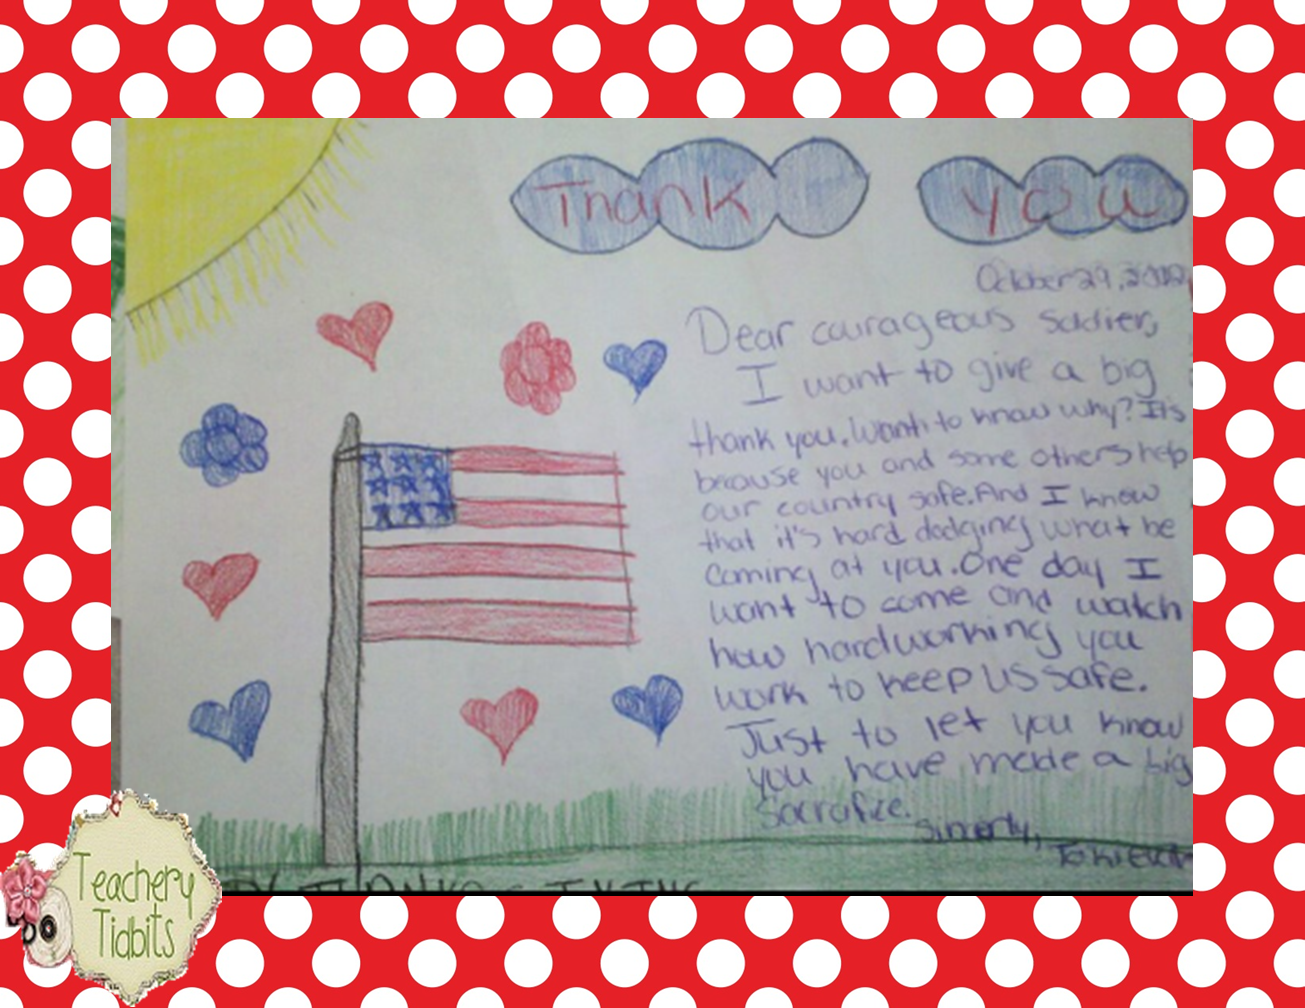 Thank You
October 29, 2012
Dear courageous soldier,
I want to give a big
thank you. Want to know why? It's
because you and some others help
our country safe. And I know
that it's hard dodging what be
coming at you. One day I
want to come and watch
how hardworking you
work to keep us safe.
Just to let you know
you have made a big
sacrafice.
THANKSGIVING
Teachery
Tidbits